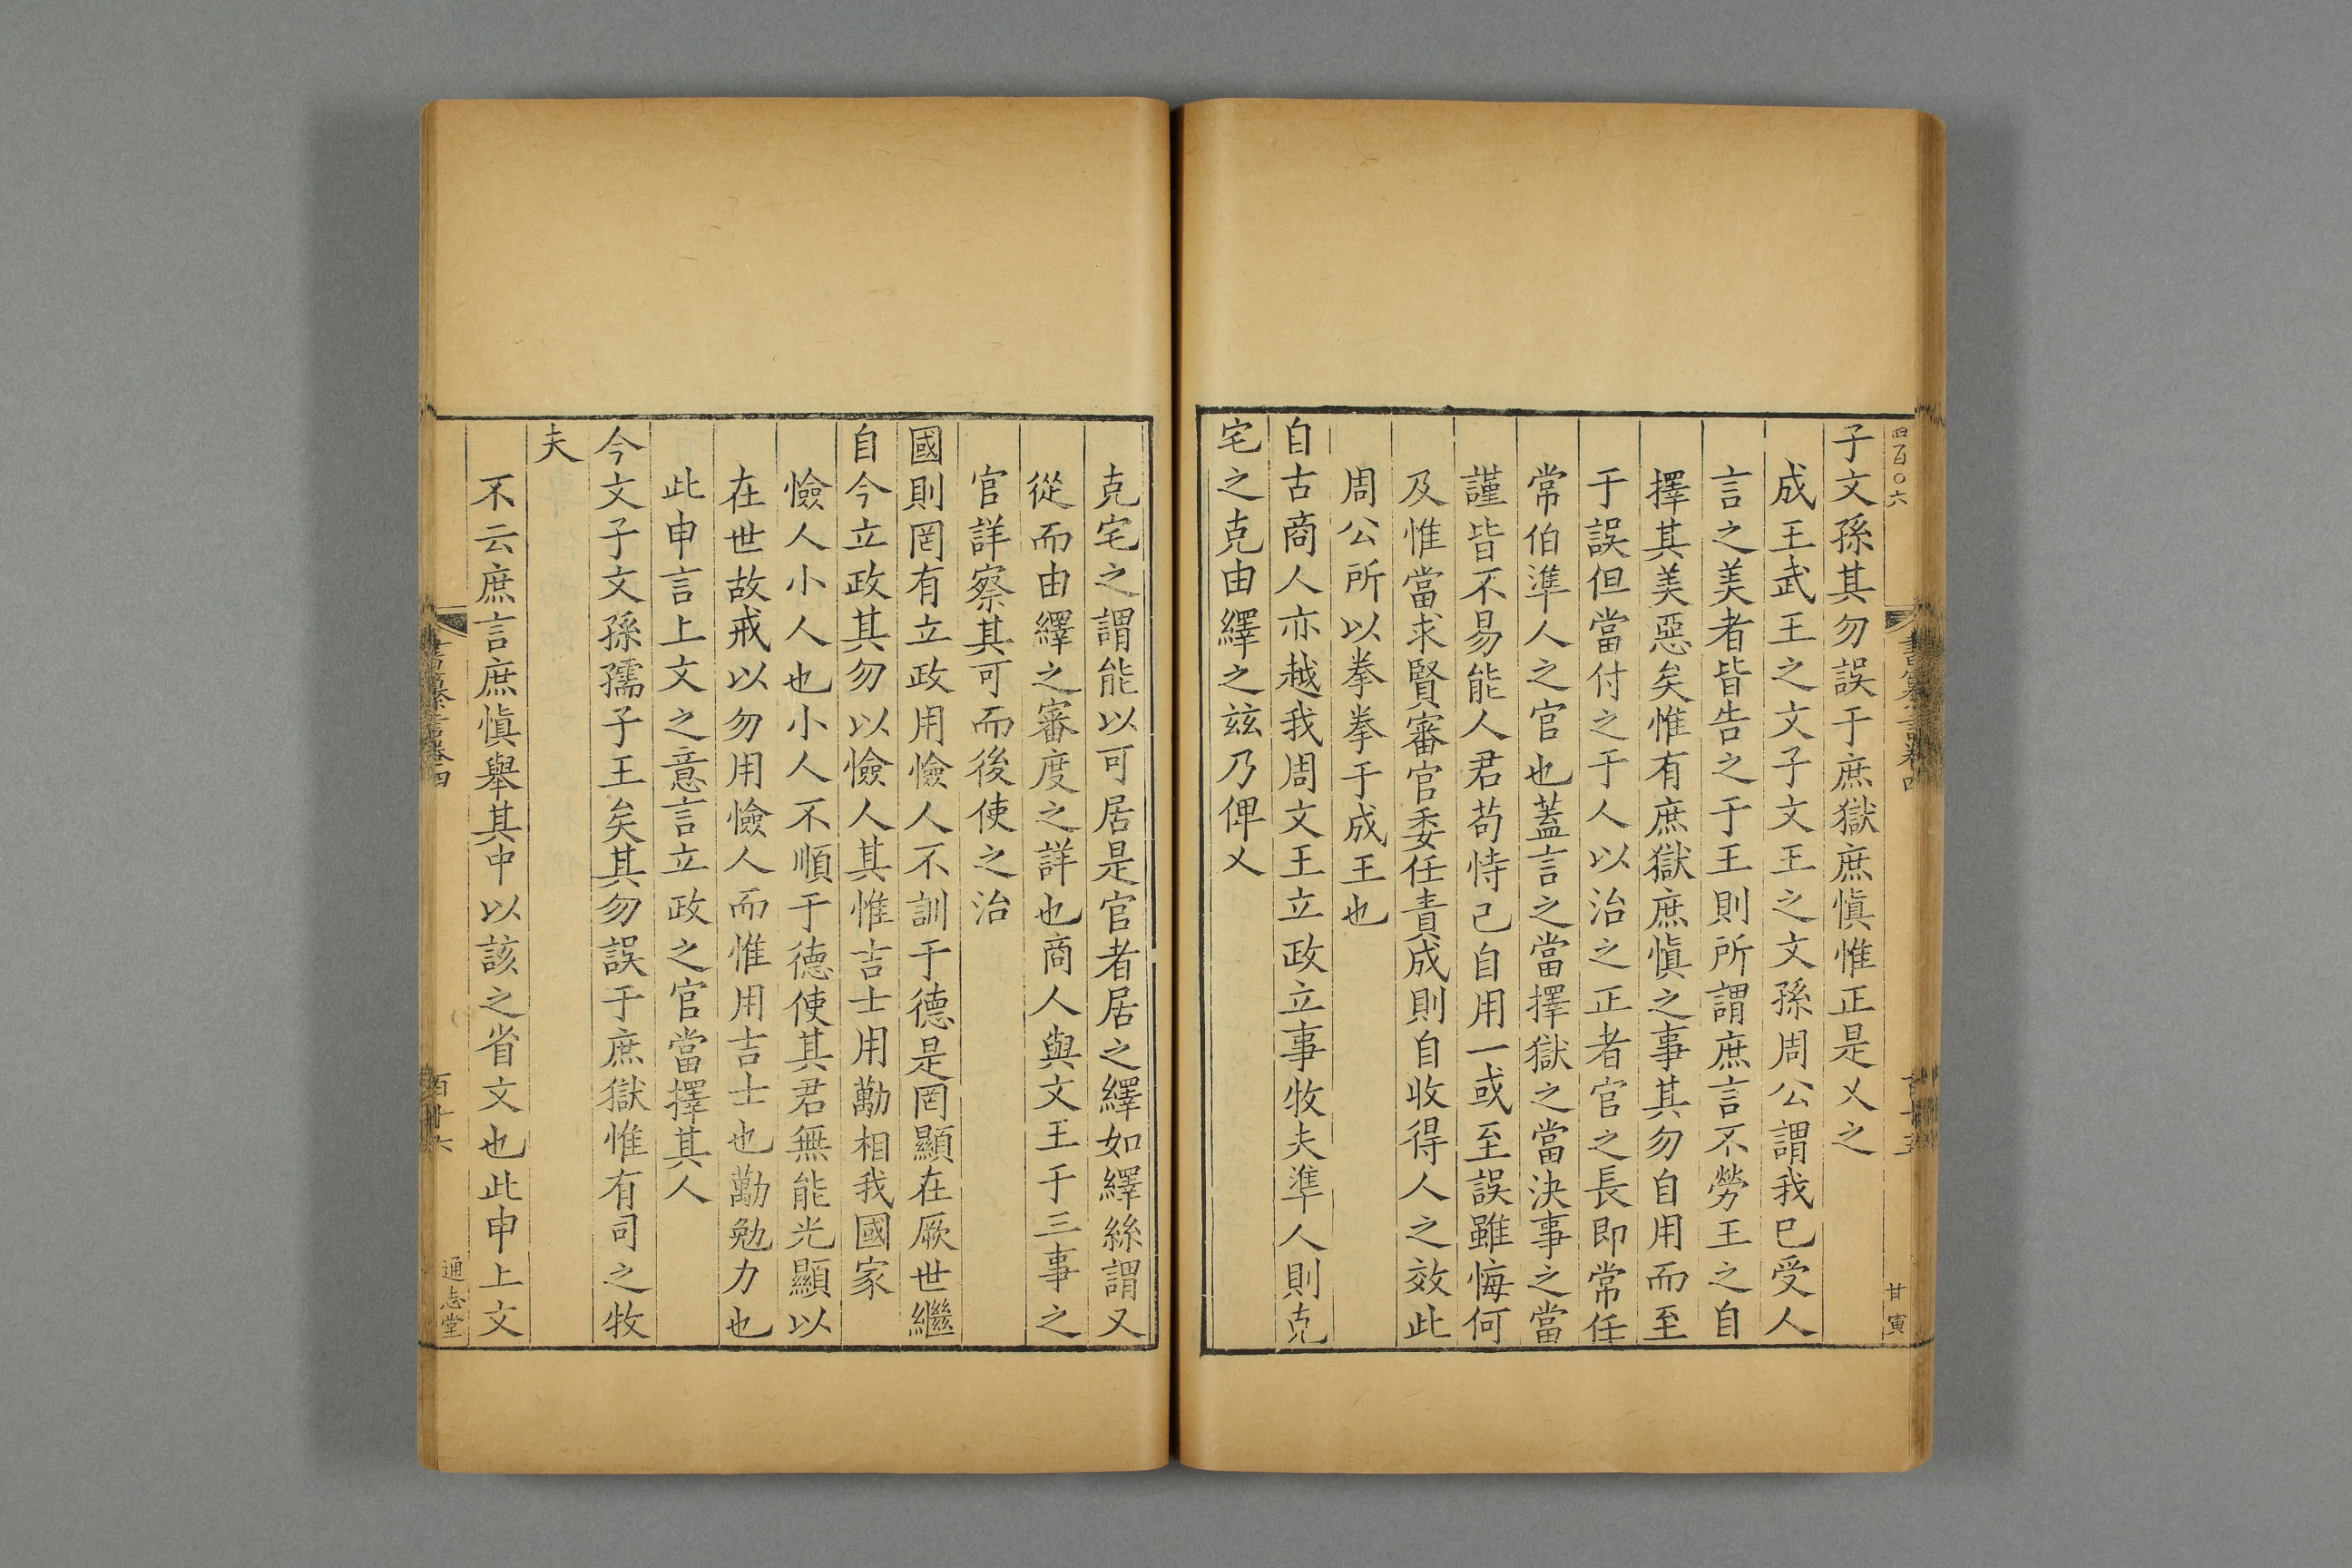 四百〇六
書纂言卷四
甘寅
子文孫其勿誤于庶獄庶愼惟正是乂之
成王武王之文子文王之文孫周公謂我已受人
言之美者皆告之于王則所謂庶言不勞王之自
擇其美惡矣惟有庶獄庶愼之事其勿自用而至
于誤但當付之于人以治之正者官之長即常任
常伯準人之官也蓋言之當擇獄之當決事之當
謹皆不易能人君苟恃己自用一或至誤雖悔何
及惟當求賢審官委任責成則自收得人之效此
周公所以拳拳于成王也
自古商人亦越我周文王立政立事牧夫準人則克
宅之克由繹之玆乃俾乂
克宅之謂能以可居是官者居之繹如繹絲謂又
從而由繹之審度之詳也商人與文王于三事之
官詳察其可而後使之治
國則罔有立政用憸人不訓于德是罔顯在厥世繼
自今立政其勿以憸人其惟吉士用勱相我國家
憸人小人也小人不順于德使其君無能光顯以
在世故戒以勿用憸人而惟用吉士也勱勉力也
此申言上文之意言立政之官當擇其人
今文子文孫孺子王矣其勿誤于庶獄惟有司之牧
夫
不云庶言庶愼舉其中以該之省文也此申上文
書纂言卷四
百十六
通志堂